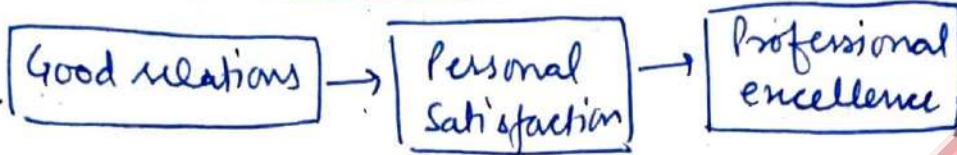 Good relations → Personal Satisfaction → Professional excellence